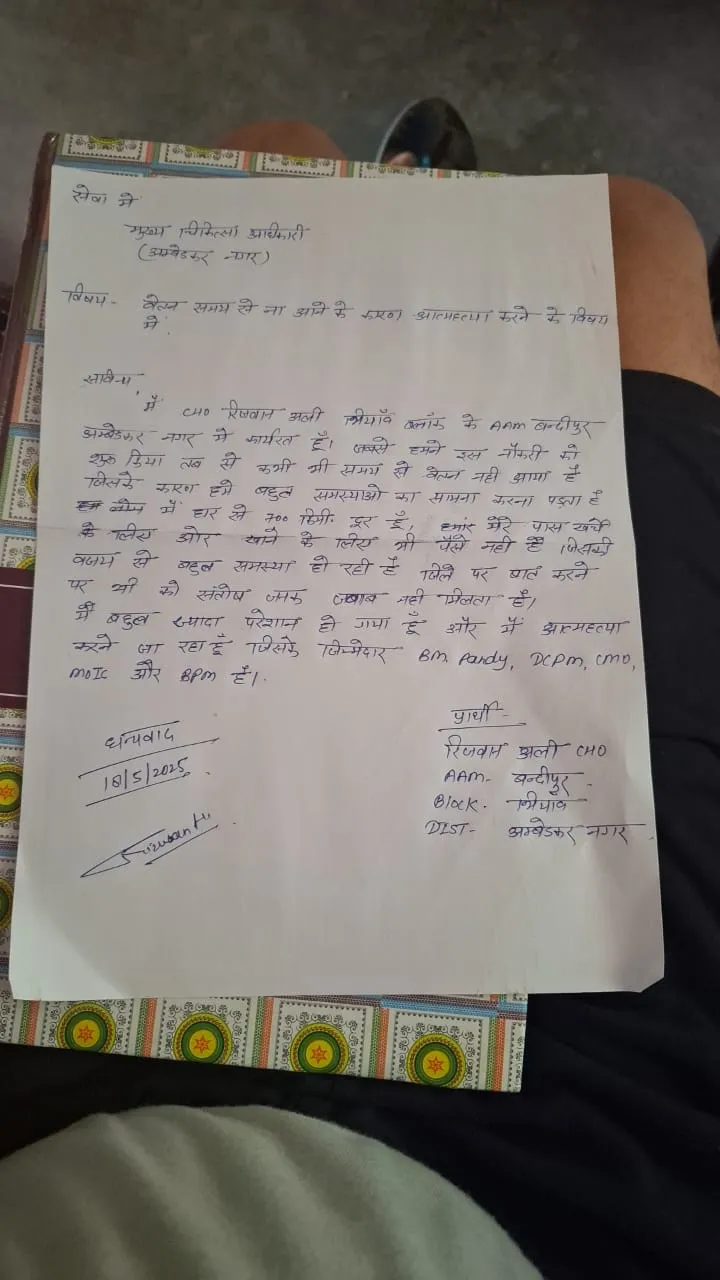 सेवा में
मुख्य चिकित्सा अधिकारी
(अम्बेडकर नगर)
विषय- वेतन समय से ना आने के कारण आत्महत्या करने के विषय
में
सविनय,
में CHO रिजवान अली भियाँव ब्लॉक के AAM बन्दीपुर
अम्बेडकर नगर में कार्यरत हूँ। जबसे हमने इस नौकरी को
शुरू किया तब से कभी भी समय से वेतन नही आया है
जिसके कारण हमे बहुत समस्याओ का सामना करना पड़ता है
में घर से 700 किमी. दूर हूँ, मेरे पास खर्चे
के लिए और खाने के लिए भी पैसे नही है जिसकी
वजय से बहुत समस्या हो रही है जिले पर बात करने
पर भी को संतोष जनक जबाब नही मिलता है।
मैं बहुत ज्यादा परेशान हो गया हूँ और में आत्महत्या
करने जा रहा हूँ जिसके जिम्मेदार BM Pandy, DCPM, CMO,
MOIC और BPM है।
धन्यवाद
18/5/2025
प्रार्थी-
रिजवान अली CHO
AAM- बन्दीपुर
Block- भियांव
DIST- अम्बेडकर नगर